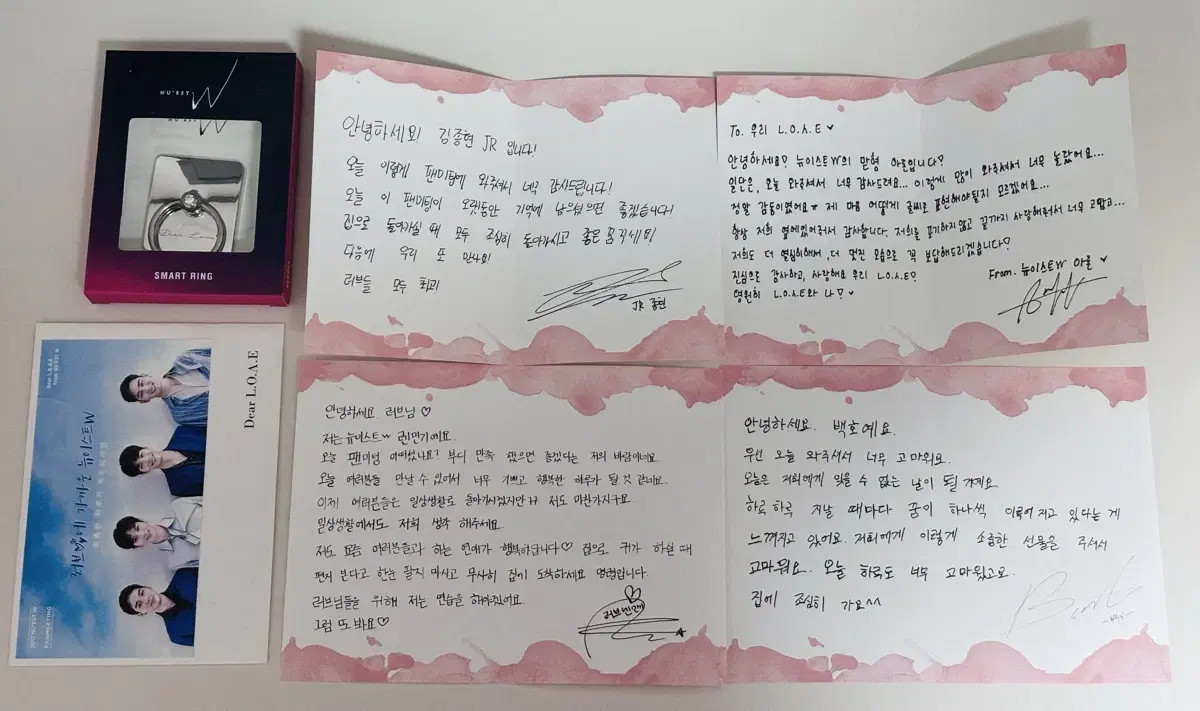 NU'EST W
SMART RING
Dear L.O.Λ.E
Dear L.O.Λ.E
from NU'EST W
러브에 가까운 뉴이스트W
2017 NU'EST W
FANMEETING
안녕하세요! 김종현 JR 입니다!
오늘 이렇게 팬미팅에 와주셔서 너무 감사드립니다!
오늘 이 팬미팅이 오랫동안 기억에 남으셨으면 좋겠습니다!
집으로 돌아가실 때 모두 조심히 돌아가시고 좋은 꿈 꾸세요!
다음에 우리 또 만나요!
러브들 모두 최고!
JR 종현
To. 우리 L.O.Λ.E ♥
안녕하세요? 뉴이스트W의 맏형 아론입니다?
일단은, 오늘 와주셔서 너무 감사드려요... 이렇게 많이 와주셔서 너무 놀랐어요...
정말 감동이였어요ㅠ 제 마음 어떻게 글씨로 표현해야될지 모르겠어요...
항상 저희 옆에있어주셔서 감사합니다. 저희를 포기하지않고 끝까지 사랑해줘서 너무 고맙고...
저희도 더 열심히해서, 더 멋진 모습으로 꼭 보답해드리겠습니다?
진심으로 감사하고, 사랑해요 우리 L.O.Λ.E?
영원히 L.O.Λ.E와 나? ♥
From. 뉴이스트W 아론 ♥
안녕하세요 러브님 ♡
저는 뉴이스트W 민기예요.
오늘 팬미팅 어떠셨나요? 부디 만족 했으면 좋겠다는 저의 바람이네요.
오늘 여러분들 만날 수 있어서 너무 기쁘고 행복한 하루가 될 것 같네요.
이제 여러분들은 일상생활로 돌아가시겠지만ㅠ 저도 마찬가지구요.
일상생활에서도 저희 생각 해주세요.
저도 요즘 여러분들과 하는 연애가 행복하답니다♡ 집으로 귀가 하실 때
편지 본다고 한눈 팔지 마시고 무사히 집에 도착하세요 명령입니다.
러브님들을 위해 저는 연습을 하러갈게요.
그럼 또 봐요♡
안녕하세요. 백호예요.
우선 오늘 와주셔서 너무 고마워요.
오늘은 저희에게 잊을 수 없는 날이 될 거예요.
하루하루 지날 때마다 꿈이 하나씩 이루어지고 있다는 게
느껴지고 있어요. 저희에게 이렇게 소중한 선물을 주셔서
고마워요. 오늘 하루도 너무 고마웠고요.
집에 조심히 가요^^